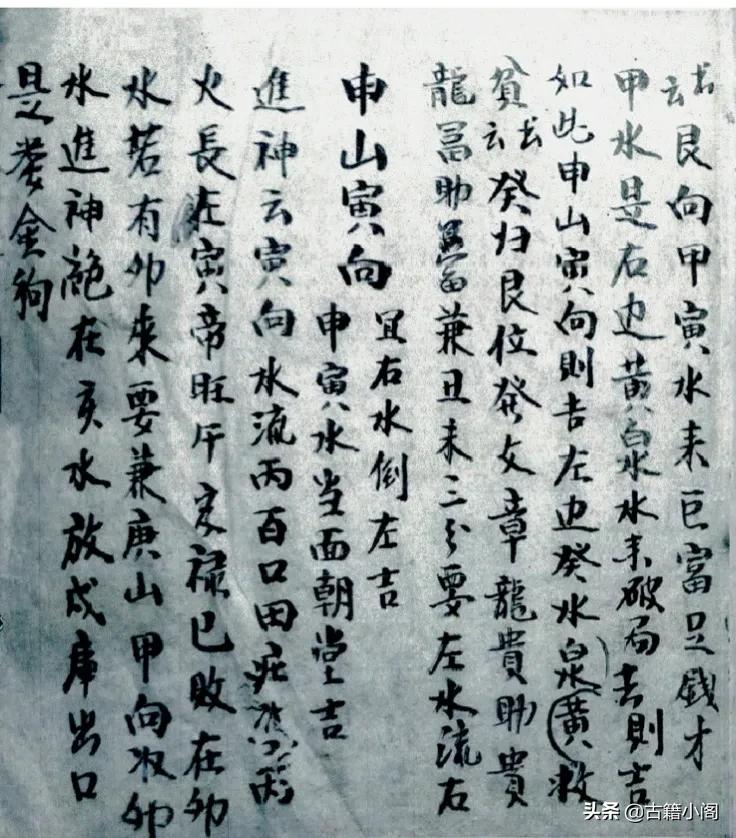 訣云艮向甲寅水耒巨富足錢才
甲水是右边黄泉水耒破局去則吉
如此申山寅向則吉左边癸水泉黄救
貧訣云癸归艮位發文章龍貴助貴
龍富助富兼丑未三分要左水流右
申山寅向 宜右水倒左吉
申寅水当面朝堂吉
進神云寅向水流丙百口田庄
火長在寅帝旺午家禄巳败在卯
水若有卯来要兼庚山甲向收卯
水進神絶在亥水放戍庫出口
是娄金狗
头条 @古籍小阁